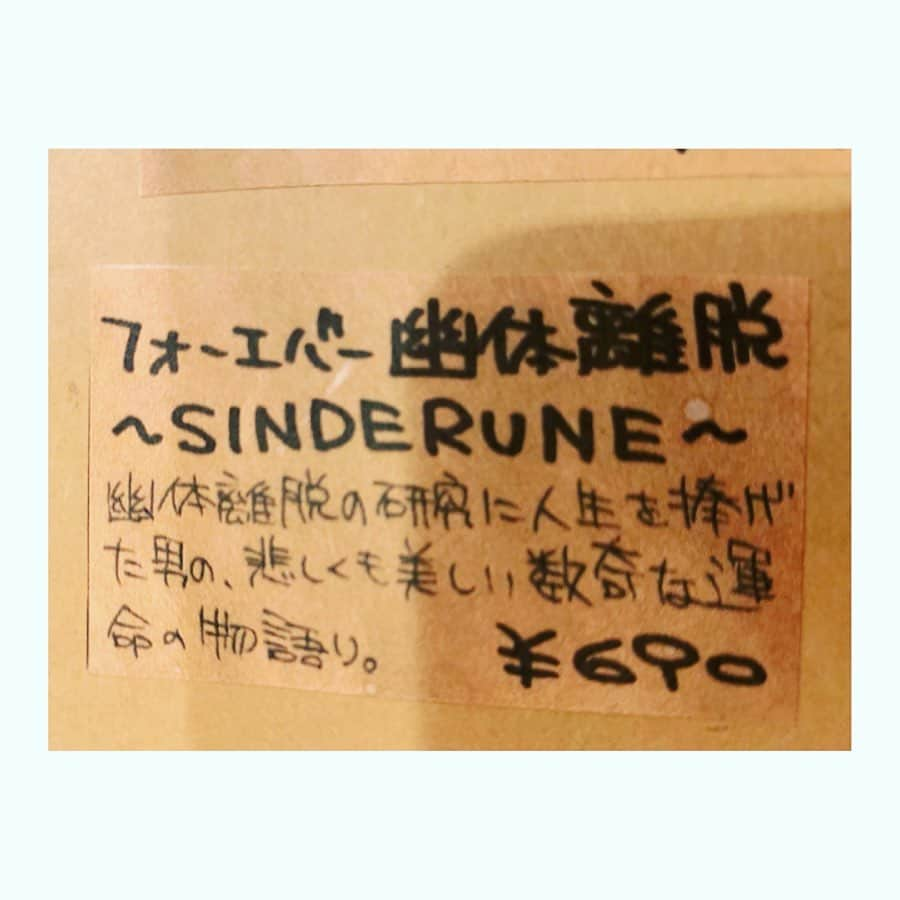 フォーエバー幽体離脱
～SINDERUNE～
幽体離脱の研究に人生を捧げ
た男の、悲しくも美しい数奇な運
命の物語り。
¥690